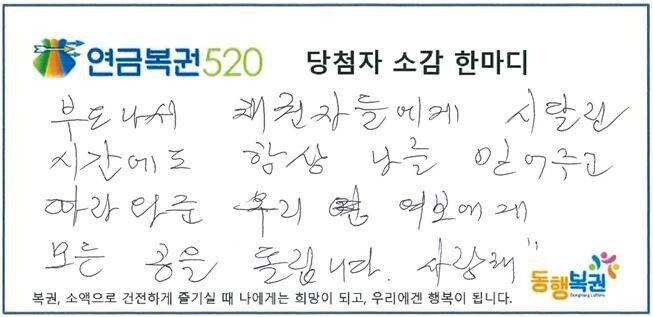 연금복권520 당첨자 소감 한마디
부도나서 채권자들에게 시달린
시간에도 항상 나를 믿어주고
따라와준 우리 여보에게
모든 공을 돌립니다. 사랑해"
동행복권
DongHang Lottery
복권, 소액으로 건전하게 즐기실 때 나에게는 희망이 되고, 우리에겐 행복이 됩니다.